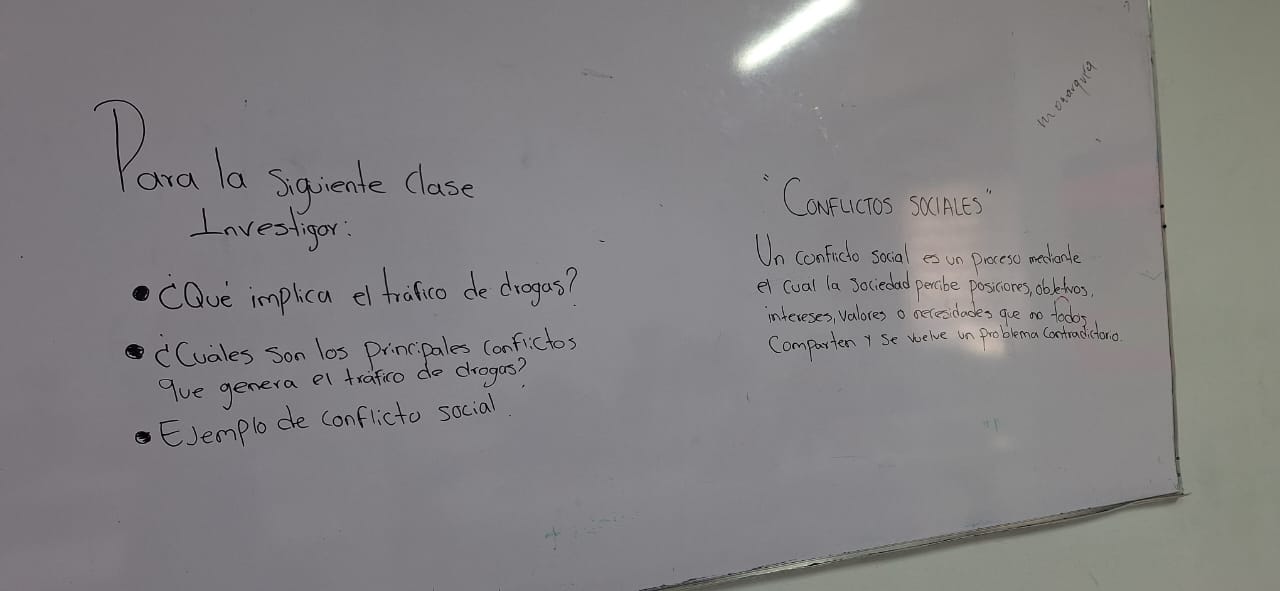 Para la siguiente clase
Investigar:
• ¿Qué implica el tráfico de drogas?
• ¿Cuáles son los principales conflictos
que genera el tráfico de drogas?
• Ejemplo de conflicto social.
"CONFLICTOS SOCIALES"
Un conflicto social es un proceso mediante
el cual la sociedad percibe posiciones, objetivos,
intereses, valores o necesidades que no todos
comparten y se vuelve un problema contradictorio.
monarquia